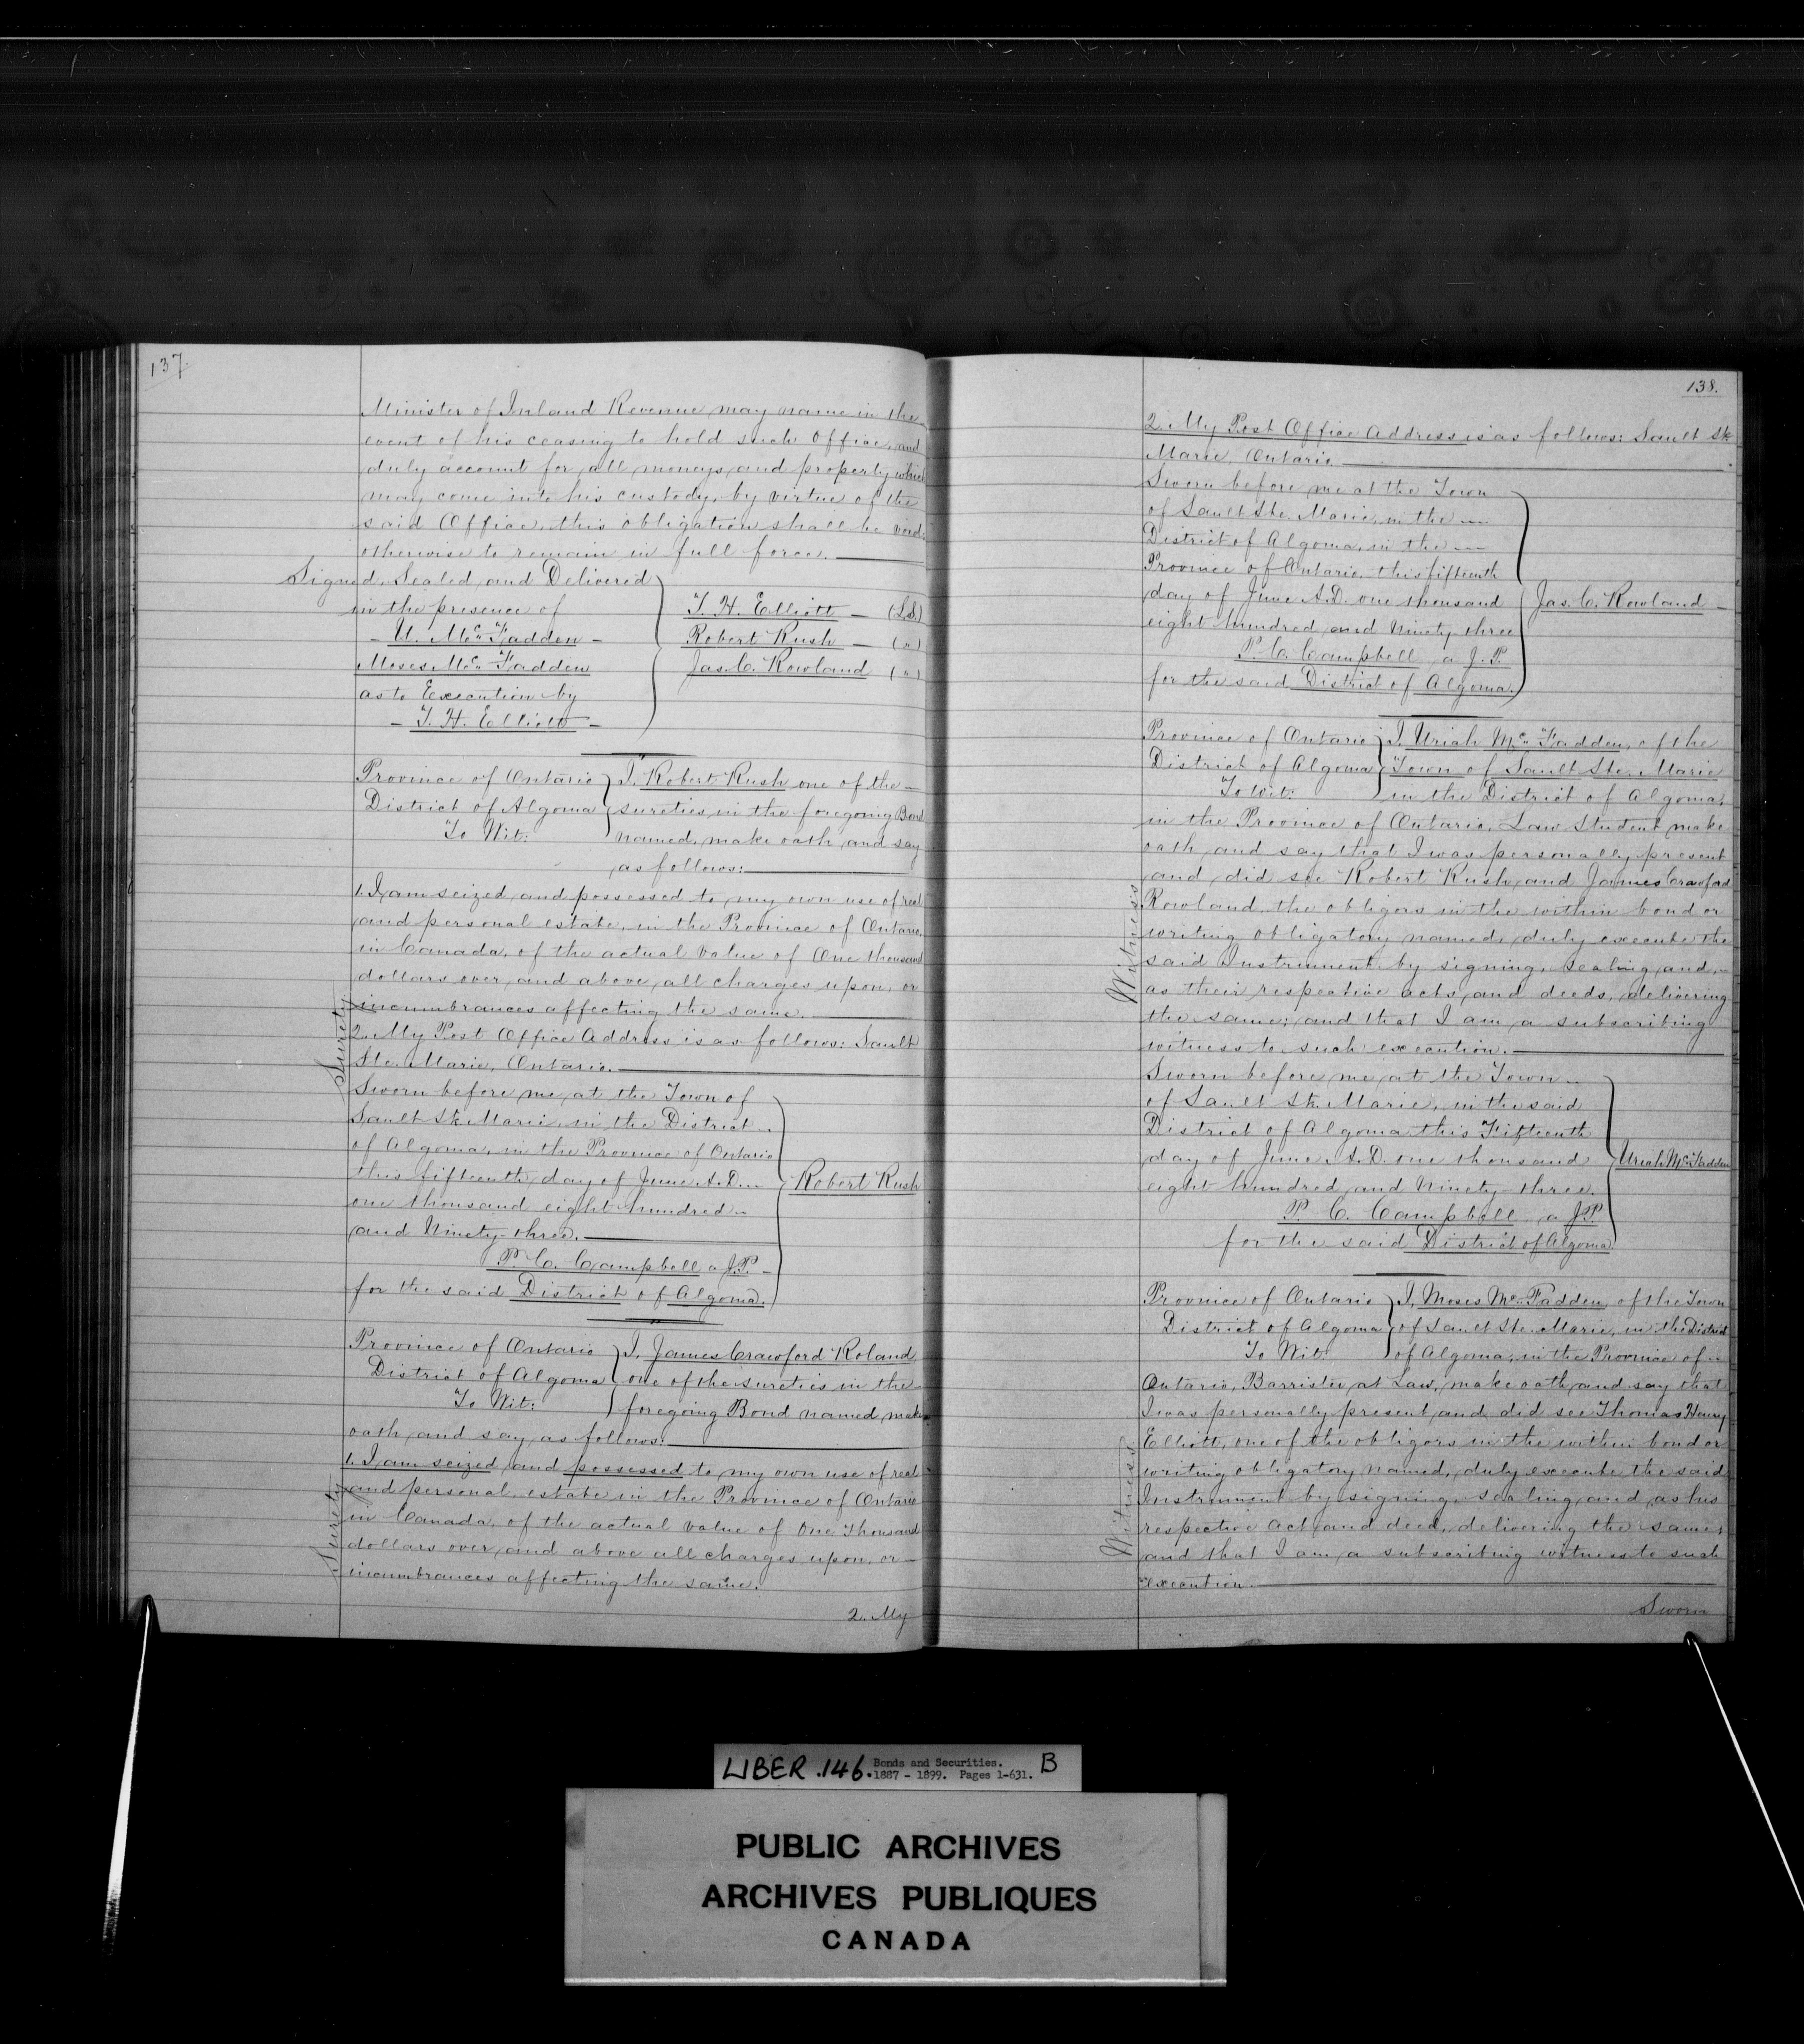 137.
Minister of Inland Revenue may name in the
event of his ceasing to hold such Office, and
duly account for all moneys and property which
may come into his custody, by virtue of the
said Office, this obligation shall be void;
otherwise to remain in full force.
Signed, Sealed and Delivered
in the presence of
U. McFadden
Moses McFadden
as to Execution by
T. H. Elliott
T. H. Elliott (L.S.)
Robert Rush (")
Jas. C. Rowland (")
Province of Ontario
District of Algoma
To Wit:
I, Robert Rush one of the
sureties in the foregoing Bond
named, make oath and say
as follows:
Surety
1. I am seized and possessed to my own use of real
and personal estate, in the Province of Ontario,
in Canada, of the actual value of One thousand
dollars over and above all charges upon, or
incumbrances affecting the same.
2. My Post Office Address is as follows: Sault
Ste. Marie, Ontario.
Sworn before me at the Town of
Sault Ste. Marie, in the District
of Algoma, in the Province of Ontario
this fifteenth day of June A.D.
one thousand eight hundred
and Ninety-three.
P. C. Campbell a J.P.
for the said District of Algoma.
Robert Rush
Province of Ontario
District of Algoma
To Wit:
I, James Crawford Roland
one of the sureties in the
foregoing Bond named, make
oath and say as follows:
Surety
1. I am seized and possessed to my own use of real
and personal estate in the Province of Ontario
in Canada, of the actual value of One Thousand
dollars over and above all charges upon, or
incumbrances affecting the same.
2. My
138.
2. My Post Office Address is as follows: Sault Ste.
Marie, Ontario.
Sworn before me at the Town
of Sault Ste. Marie, in the
District of Algoma, in the
Province of Ontario, this fifteenth
day of June A.D. one thousand
eight hundred and Ninety three
P. C. Campbell a J.P.
for the said District of Algoma.
Jas. C. Rowland
Province of Ontario
District of Algoma
To Wit:
I, Uriah McFadden, of the
Town of Sault Ste. Marie
in the District of Algoma,
in the Province of Ontario, Law Student make
oath and say that I was personally present
and did see Robert Rush and James Crawford
Rowland, the obligors in the within bond or
writing obligatory named, duly execute the
said Instrument by signing, sealing and
as their respective acts and deeds, delivering
the same; and that I am a subscribing
witness to such execution.
Witness
Sworn before me at the Town
of Sault Ste. Marie, in the said
District of Algoma this Fifteenth
day of June, A.D. one thousand
eight hundred and Ninety-three.
P. C. Campbell a J.P.
for the said District of Algoma
Uriah McFadden
Province of Ontario
District of Algoma
To Wit:
I, Moses McFadden, of the Town
of Sault Ste. Marie, in the District
of Algoma, in the Province of
Ontario, Barrister at Law, make oath and say that
I was personally present and did see Thomas Henry
Elliott, one of the obligors in the within bond or
writing obligatory named, duly execute the said
Instrument by signing, sealing and as his
respective act and deed, delivering the same;
and that I am a subscribing witness to such
execution.
Witness
Sworn
LIBER .146. Bonds and Securities. B
1887 - 1899. Pages 1-631.
PUBLIC ARCHIVES
ARCHIVES PUBLIQUES
CANADA